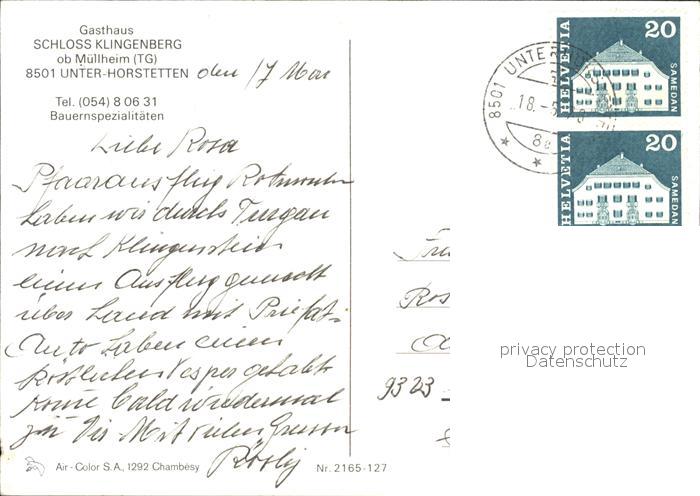 Gasthaus
SCHLOSS KLINGENBERG
ob Müllheim (TG)
8501 UNTER-HORSTETTEN den 17 Mai
Tel. (054) 8 06 31
Bauernspezialitäten
Liebe Rosa
Pfaarausflug
haben wir durch Turgau
nach Klingenstein
einen Ausflug gemacht
über Land mit Priefat-
Auto haben einen
köstlichen Vesper gehabt
kome bald wiedermal
zu Dir Mit vielen Grüssen
Rösly
Air-Color S.A., 1292 Chambésy
Nr. 2165-127
HELVETIA 20 SAMEDAN
HELVETIA 20 SAMEDAN
8501 UNTER
18. -5.
Ros
9323
privacy protection
Datenschutz